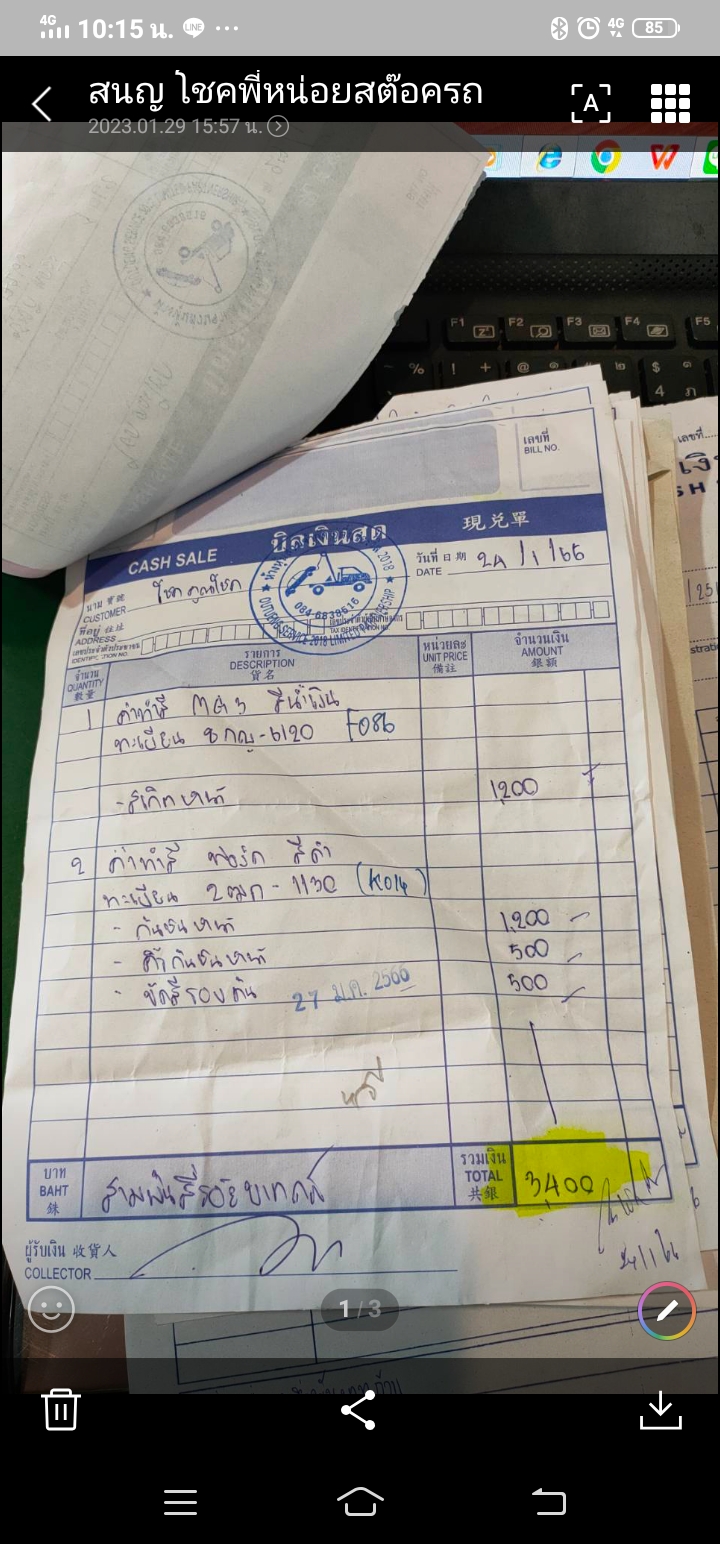 4G 10:15 น. LINE 4G 85
สนญ โชคพี่หน่อยสต๊อครถ
2023.01.29 15:57 น.
A
F1 F2 F3 F4 F5
% ! + @
เลขที่
BILL NO.
เลขที่
บิลเงินสด
CASH SALE
現兌單
วันที่ 日期
DATE 24/1/66
นาม 寶號
CUSTOMER โชค คุณโชค
ที่อยู่ 住址
ADDRESS
084 6838616
SERVICE 2018 LIMITED PARTNERSHIP
จำนวน
QUANTITY
數量
รายการ
DESCRIPTION
貨名
หน่วยละ
UNIT PRICE
備註
จำนวนเงิน
AMOUNT
銀額
1 ค่าทำสี MG3 สีน้ำเงิน
ทะเบียน 8กญ-6120 F086
- สเกิตหน้า 1,200
2 ค่าทำสี ฟอร์ด สีดำ
ทะเบียน 2ฒก-1130 (K014)
- กันชนหน้า 1,200
- ค้ำกันชนหน้า 500
- ขัดสีรอบคัน 500
27 ม.ค. 2566
บาท
BAHT
銖
สามพันสี่ร้อยบาทถ้วน
รวมเงิน
TOTAL
共銀
3400
24/1/66
ผู้รับเงิน 收貨人
COLLECTOR
1 / 3